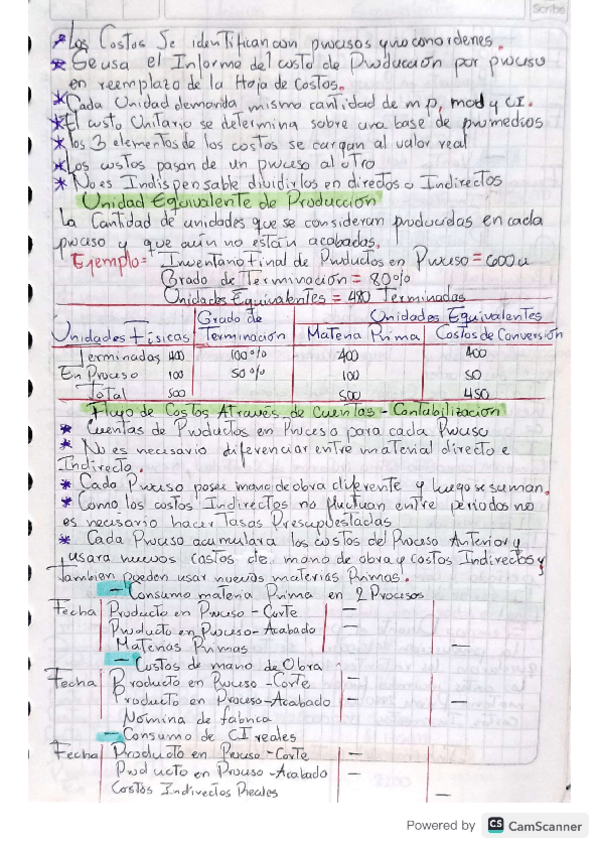 Scribe
* Los Costos Se identifican con procesos y no con ordenes.
* Se usa el Informe del costo de Producción por proceso
en reemplazo de la Hoja de Costos.
* Cada Unidad demanda misma cantidad de mp, mod y CI.
* El costo Unitario se determina sobre una base de promedios
* los 3 elementos de los costos se cargan al valor real
* Los costos pasan de un proceso al otro
* No es Indispensable dividirlos en directos o Indirectos
Unidad Equivalente de Producción
La Cantidad de unidades que se consideran producidas en cada
proceso y que aún no están acabadas.
Ejemplo= Inventario Final de Productos en Proceso = 600u
Grado de Terminación = 80%
Unidades Equivalentes = 480 Terminadas
Unidades Físicas Grado de Terminación Unidades Equivalentes
Materia Prima Costos de Conversión
Terminadas 400 100% 400 400
En Proceso 100 50% 100 50
Total 500 500 450
Flujo de Costos Através de Cuentas - Contabilización
* Cuentas de Productos en Proceso para cada Proceso
* No es necesario diferenciar entre material directo e
Indirecto.
* Cada Proceso posee mano de obra diferente y luego se suman.
* Como los costos Indirectos no fluctuan entre periodos no
es necesario hacer Tasas Presupuestadas
* Cada Proceso acumulara los costos del Proceso Anterior y
usara nuevos costos de mano de obra y costos Indirectos y
Tambien pueden usar nuevas materias Primas.
— Consumo materia Prima en 2 Procesos
Fecha Producto en Proceso - Corte —
Producto en Proceso - Acabado —
Materias Primas —
— Costos de mano de Obra
Fecha Producto en Proceso - Corte —
Producto en Proceso - Acabado — —
Nómina de fabrica
— Consumo de CI reales
Fecha Producto en Proceso - Corte —
Producto en Proceso - Acabado —
Costos Indirectos Reales —
Powered by CS CamScanner